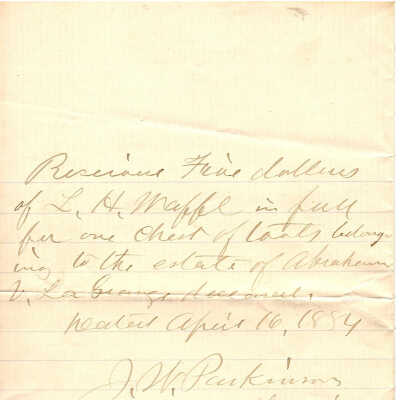 Recieved Five dollars
of L. H. Wappl in full
for one Chest of tools belong
ing to the estate of Abraham
V. La Grange deceased.
Dated April 16, 1884
J. W. Parkinson